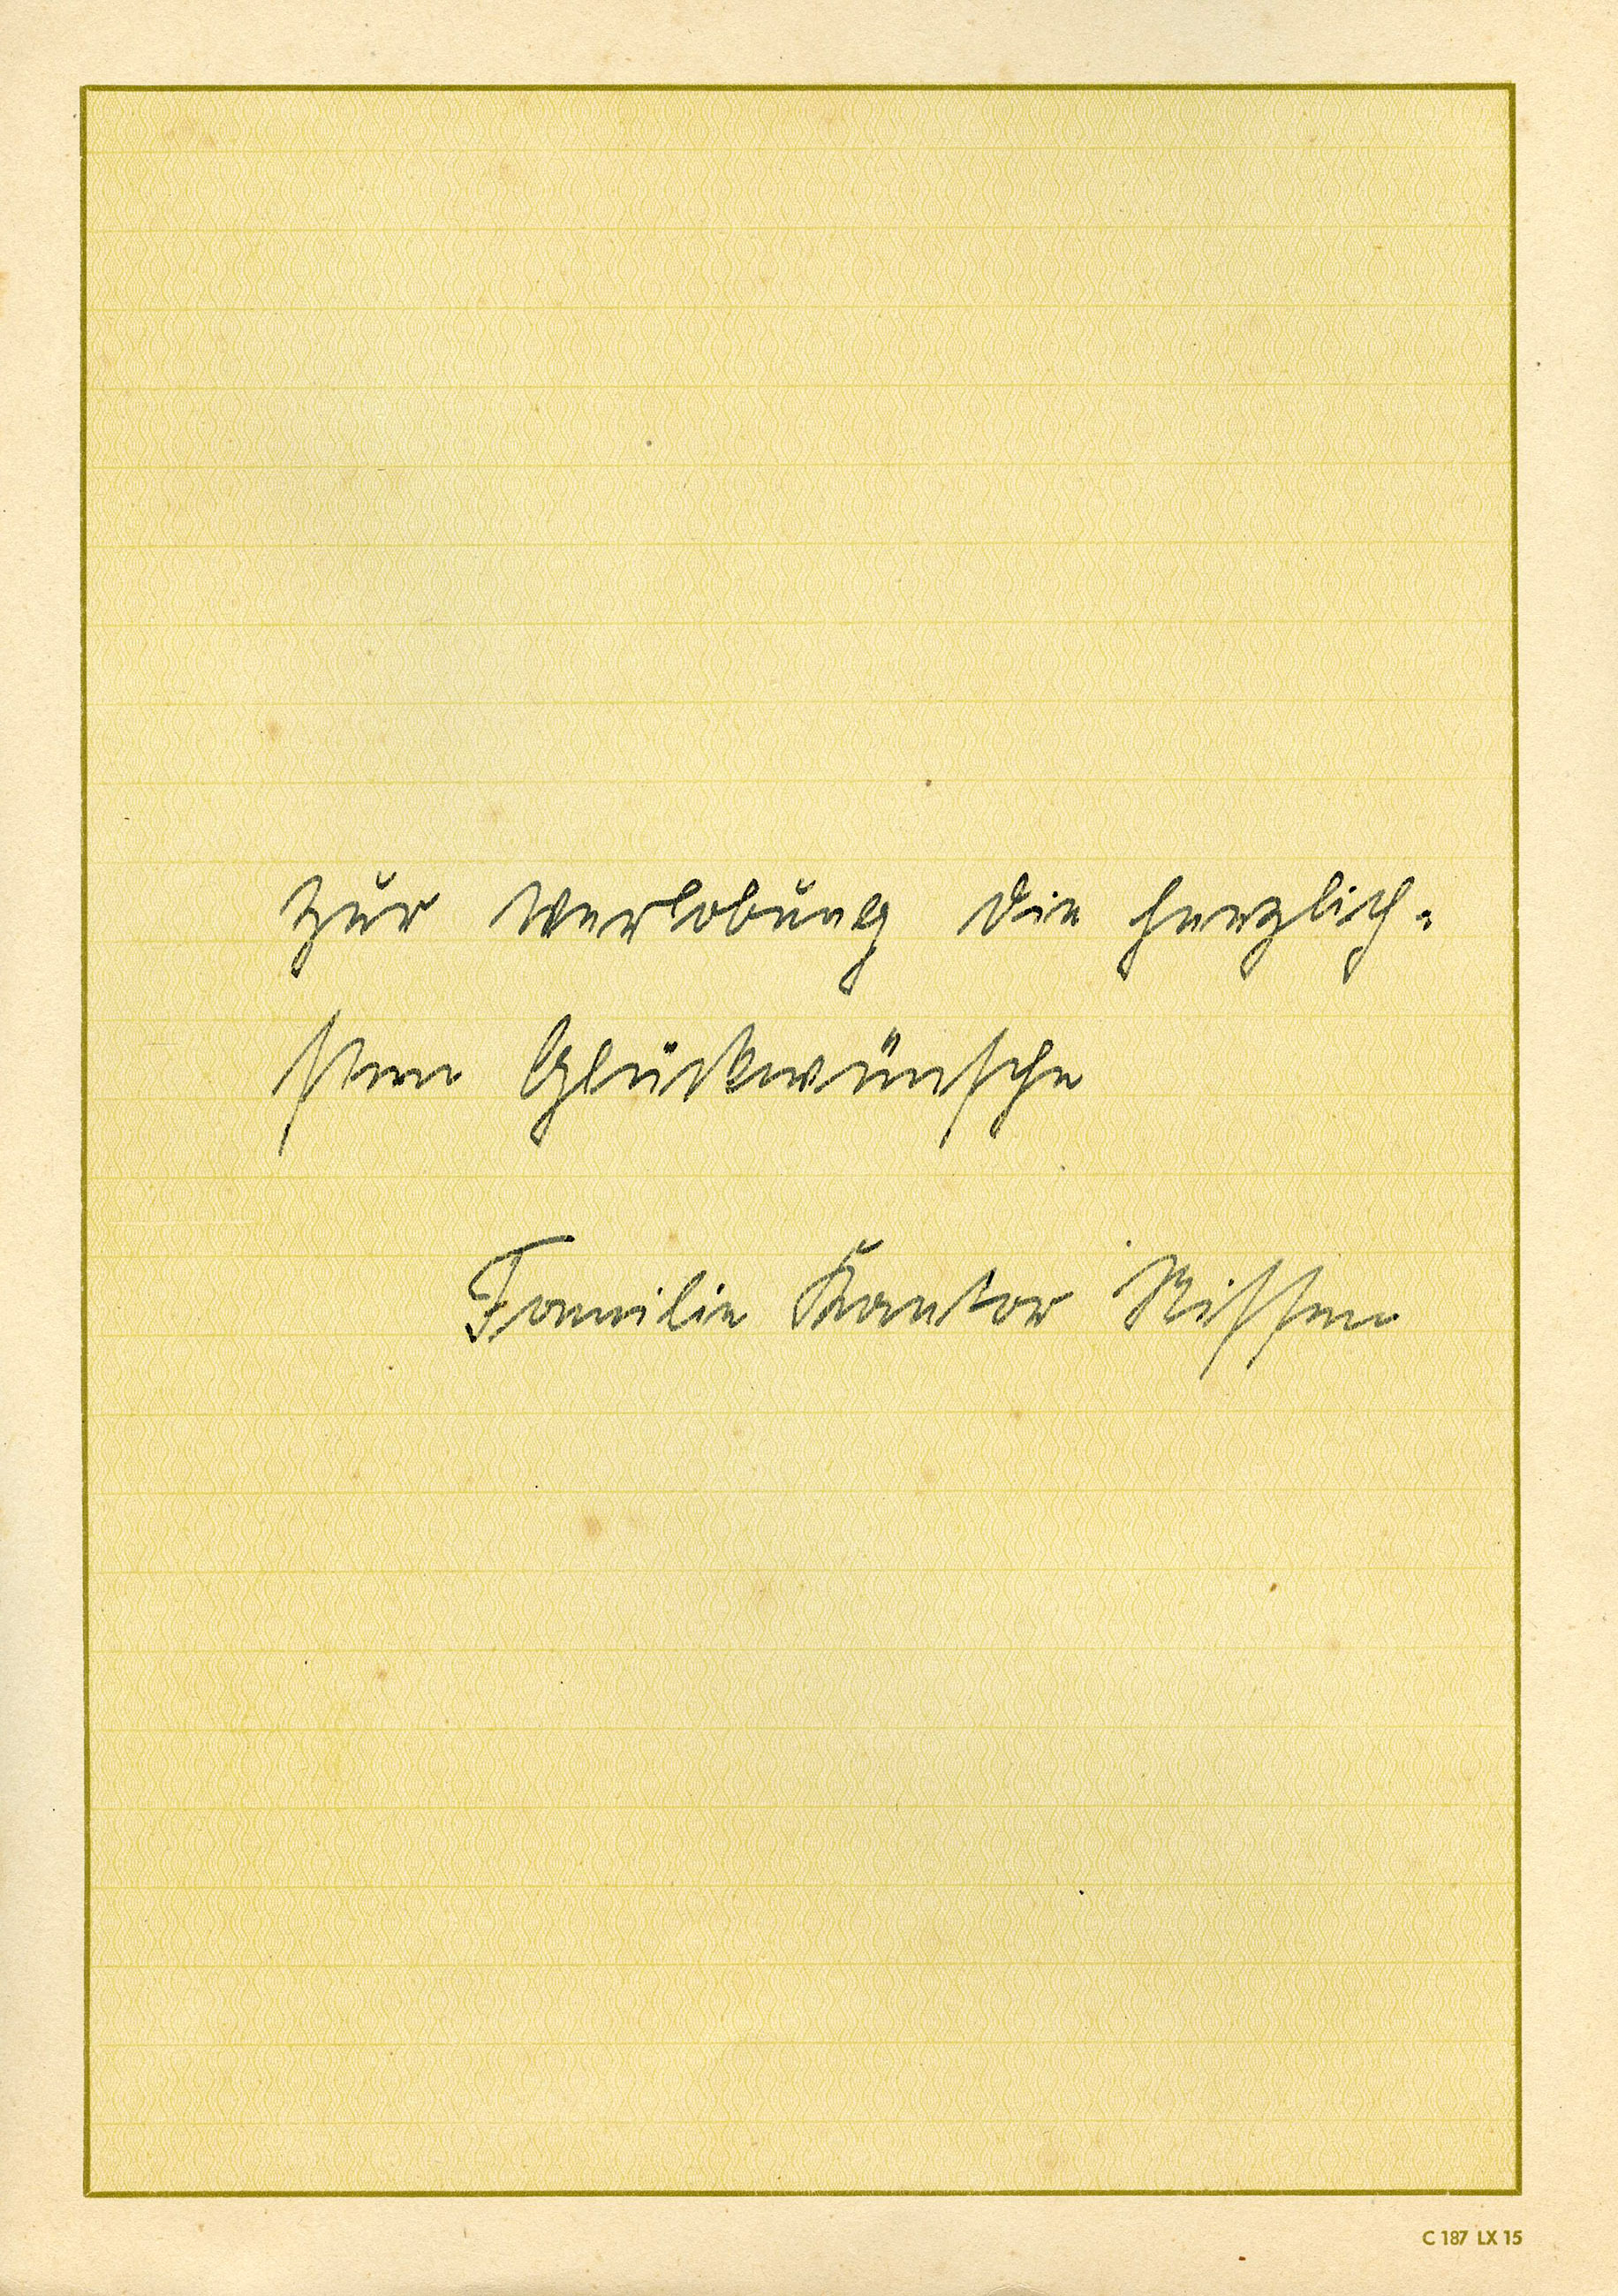 Zur Verlobung die herzlich-
sten Glückwünsche
Familie Kantor Nissen
C 187 LX 15